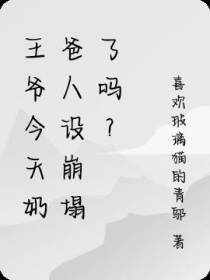 王爷今天奶
爸人设崩塌
了吗？
喜欢玻璃猫的青 著